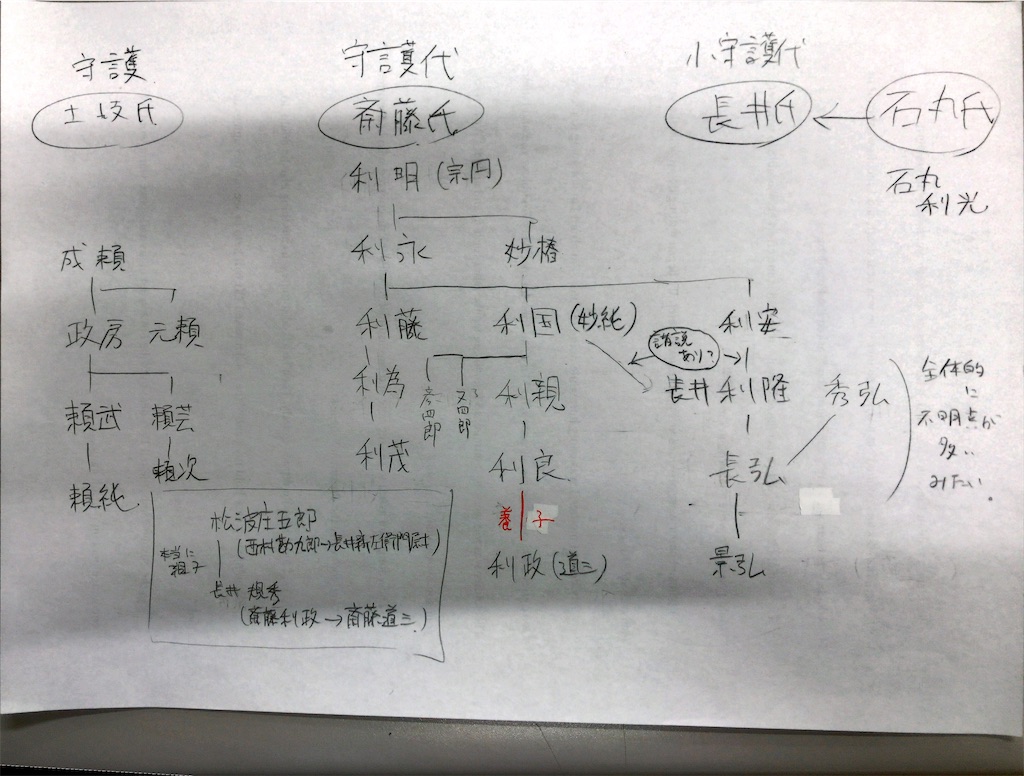 守護
守護代
小守護代
土岐氏
斎藤氏
長井氏
石丸氏
石丸
利光
利明 (宗円)
成頼
利永
妙椿
政房
元頼
利藤
利国 (妙純)
利安
諸説
あり?
頼武
頼芸
利為
彦四郎
又四郎
利親
長井利隆
秀弘
全体的
に
不明点が
多い
みたい。
頼純
頼次
利茂
利良
長弘
養子
利政 (道三)
景弘
松波庄五郎
(西村勘九郎→長井新左衛門尉)
本当に
祖子
長井 規秀
(斎藤利政→斎藤道三)